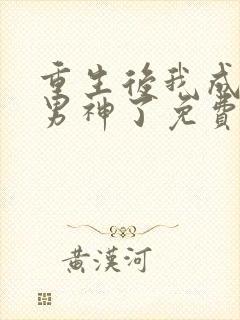 重生後我成
男神了免費
黃漢河